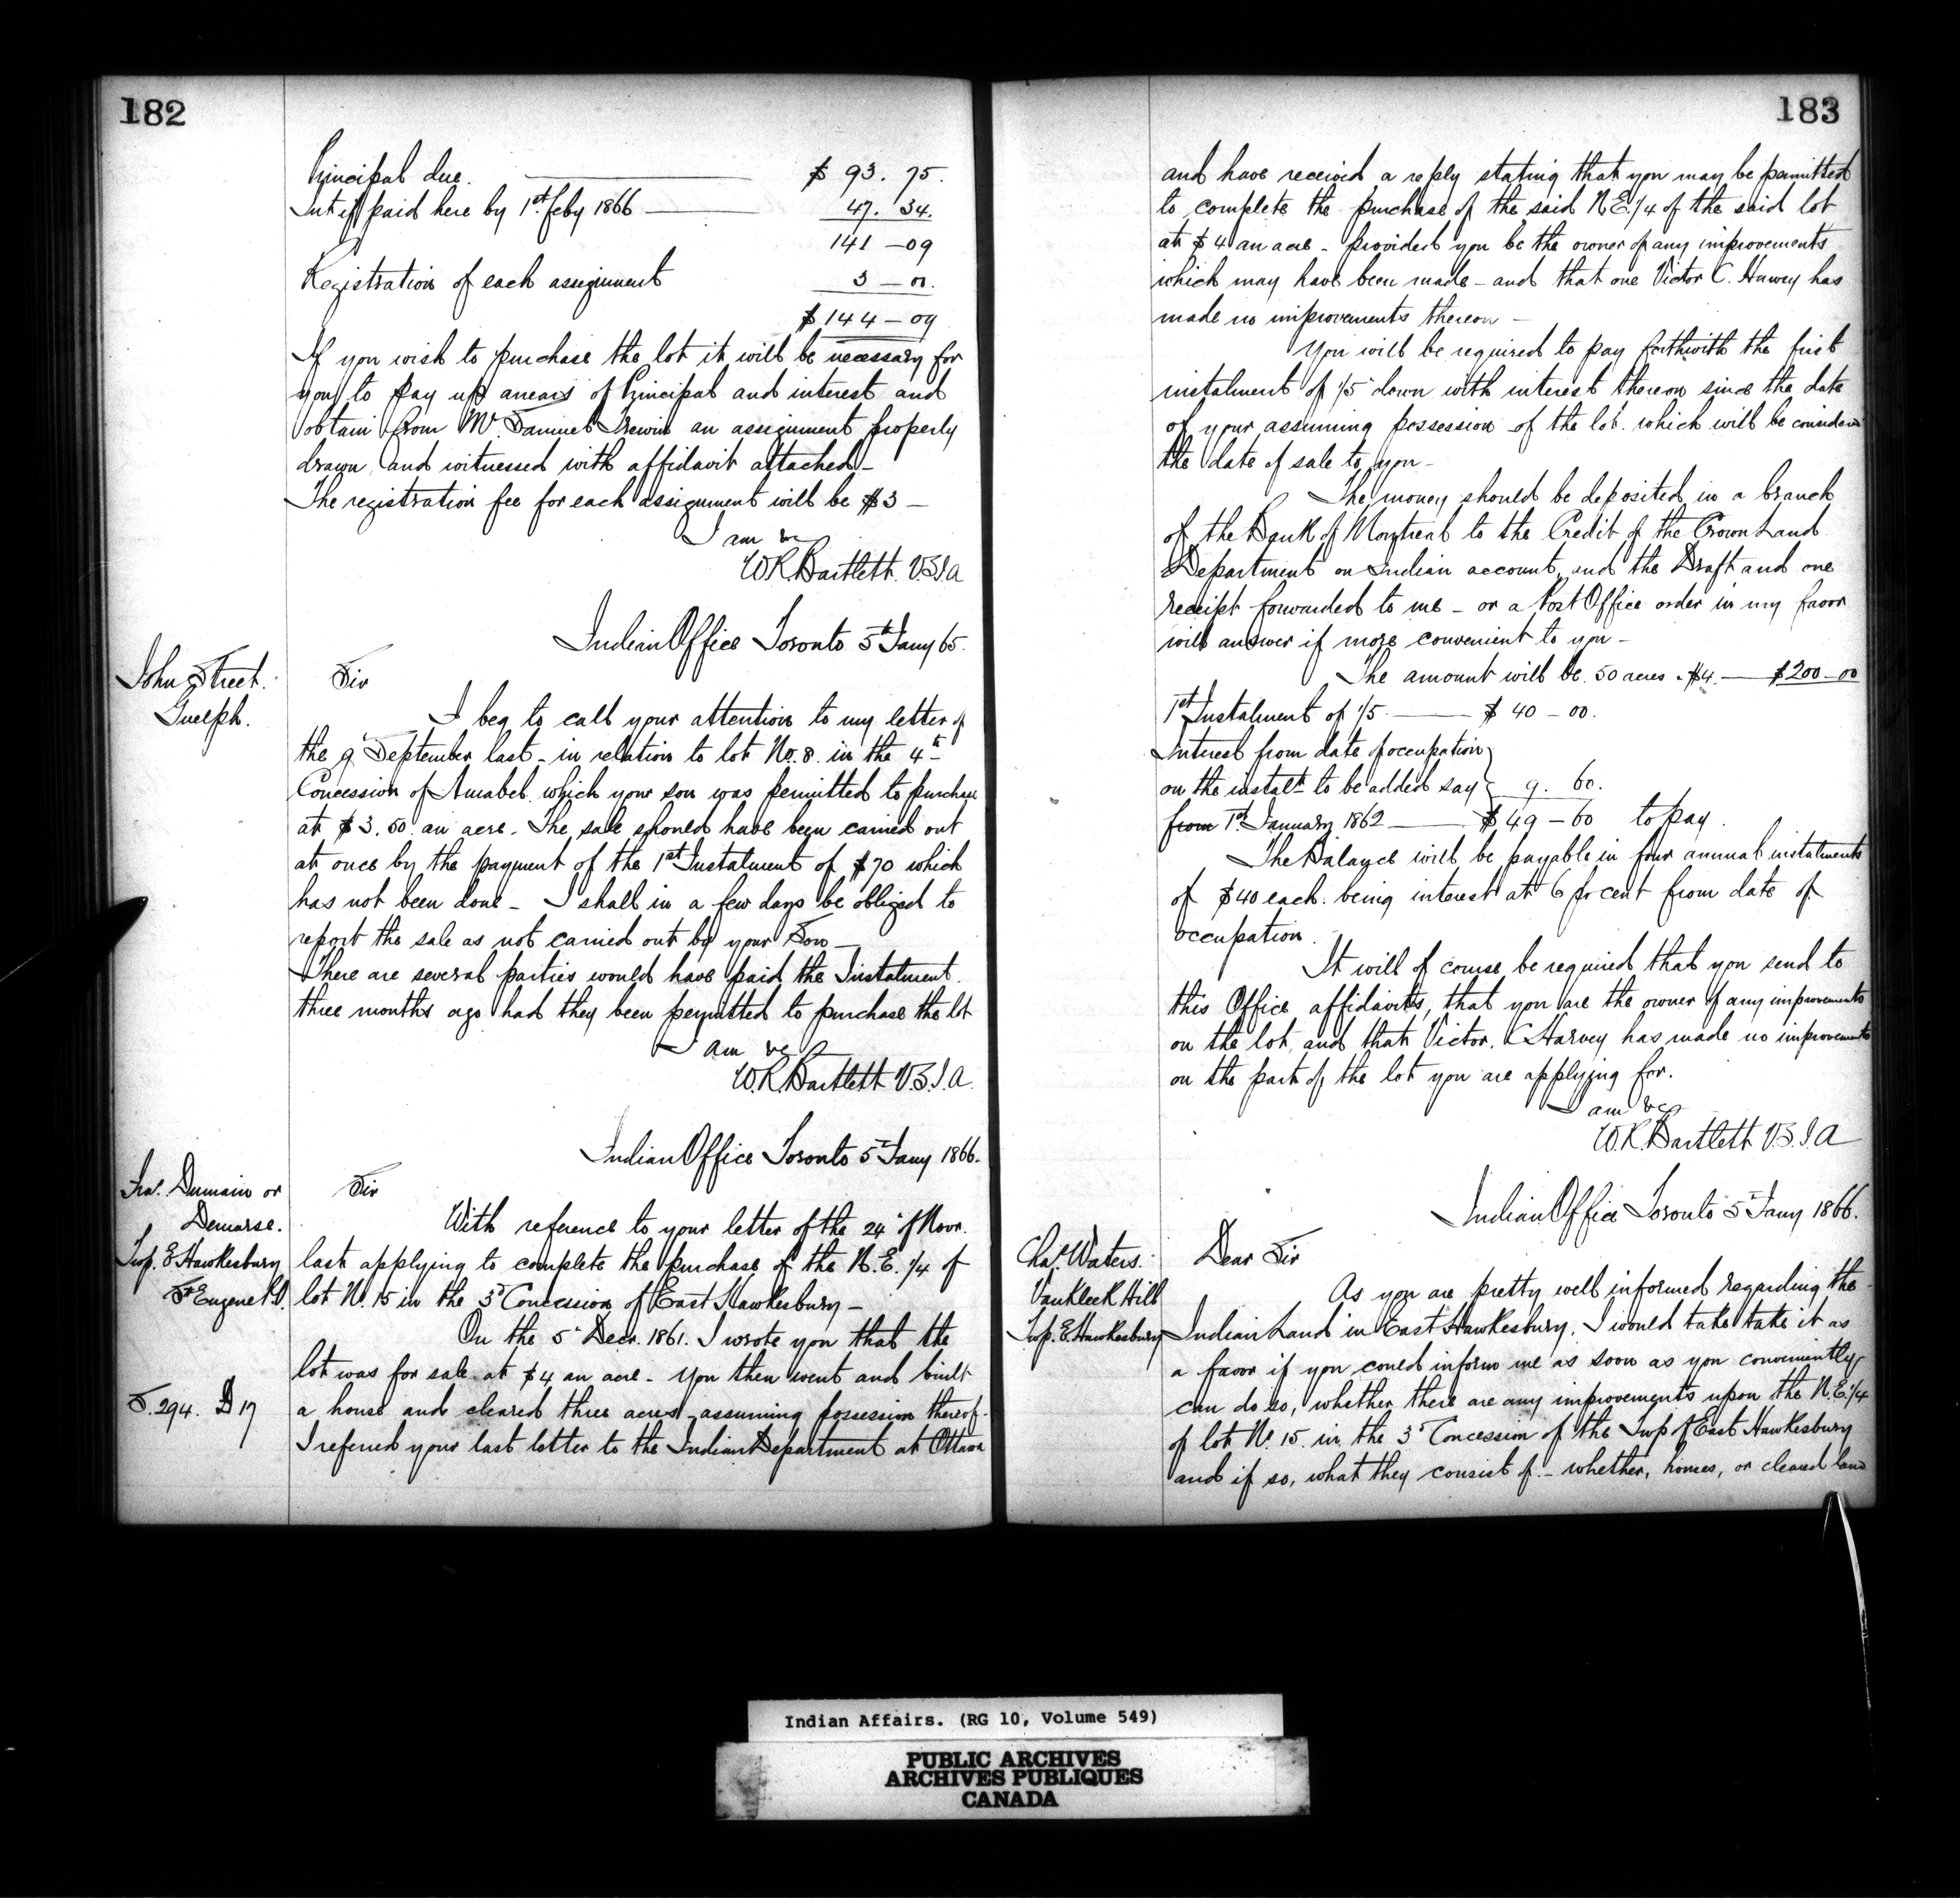 182
Principal due. $ 93. 75.
Int if paid here by 1st. Feby 1866 47. 34.
141 - 09
Registration of each assignment 3 - 00.
$ 144 - 09
If you wish to purchase the lot it will be necessary for
you to pay up arrears of Principal and interest and
obtain from Mr. Samuel Irewin an assignment properly
drawn and witnessed with affidavit attached -
The registration fee for each assignment will be $3 -
I am &c
W.R. Bartlett. V.S.I.A
Indian Office Toronto 5th Jany 65.
John Street.
Guelph.
Sir
I beg to call your attention to my letter of
the 9 September last - in relation to lot No. 8. in the 4th
Concession of Amabel which your son was permitted to purchase
at $3.50. an acre. The sale should have been carried out
at once by the payment of the 1st Instalment of $70 which
has not been done - I shall in a few days be obliged to
report the sale as not carried out by your Son -
There are several parties would have paid the Instalment
three months ago had they been permitted to purchase the lot
I am &c
W.R. Bartlett V.S.I.A.
Indian Office Toronto 5th Jany 1866.
Fra. Dumain or
Demarse.
Twp. E Hawkesbury
St Eugene P.O.
Sir
With reference to your letter of the 24 of Novr.
last applying to complete the purchase of the N.E. 1/4 of
lot No. 15 in the 3d Concession of East Hawkesbury -
On the 5 Decr. 1861. I wrote you that the
lot was for sale at $4 an acre - You then went and built
S. 294. D 17
a house and cleared three acres - assuming possession thereof -
I referred your last letter to the Indian Department at Ottawa
183
and have received a reply stating that you may be permitted
to complete the purchase of the said N.E. 1/4 of the said lot
at $4 an acre - provided you be the owner of any improvements
which may have been made - and that one Victor C. Harvey has
made no improvements thereon -
You will be required to pay forthwith the first
instalment of 1/5 down with interest thereon since the date
of your assuming possession of the lot. which will be considered
the date of sale to you -
The money should be deposited in a branch
of the Bank of Montreal to the Credit of the Crown Land
Department on Indian account, and the Draft and one
receipt forwarded to me - or a Post Office order in my favor
will answer if more convenient to you -
The amount will be 50 acres - $4. - $200 - 00
1st Instalment of 1/5 - $ 40 - 00.
Interest from date of occupation
on the instalt. to be added say 9. 60.
from 1st. January 1862 - $49 - 60 to pay.
The Balance will be payable in four annual instalments
of $40 each. being interest at 6 pr cent from date of
occupation.
It will of course be required that you send to
this Office affidavits, that you are the owner of any improvements
on the lot, and that Victor. C Harvey has made no improvements
on the part of the lot you are applying for.
I am &c
W.R. Bartlett V.S.I.A
Indian Office Toronto 5th Jany 1866.
Chas. Waters.
Vankleek Hill
Twp. E. Hawkesbury
Dear Sir
As you are pretty well informed regarding the
Indian Land in East Hawkesbury, I would take take it as
a favor if you could inform me as soon as you conveniently
can do so, whether there are any improvements upon the N.E. 1/4
of lot No. 15. in the 3d Concession of the Twp of East Hawkesbury
and if so, what they consist of - whether, houses, or cleared land
Indian Affairs. (RG 10, Volume 549)
PUBLIC ARCHIVES
ARCHIVES PUBLIQUES
CANADA